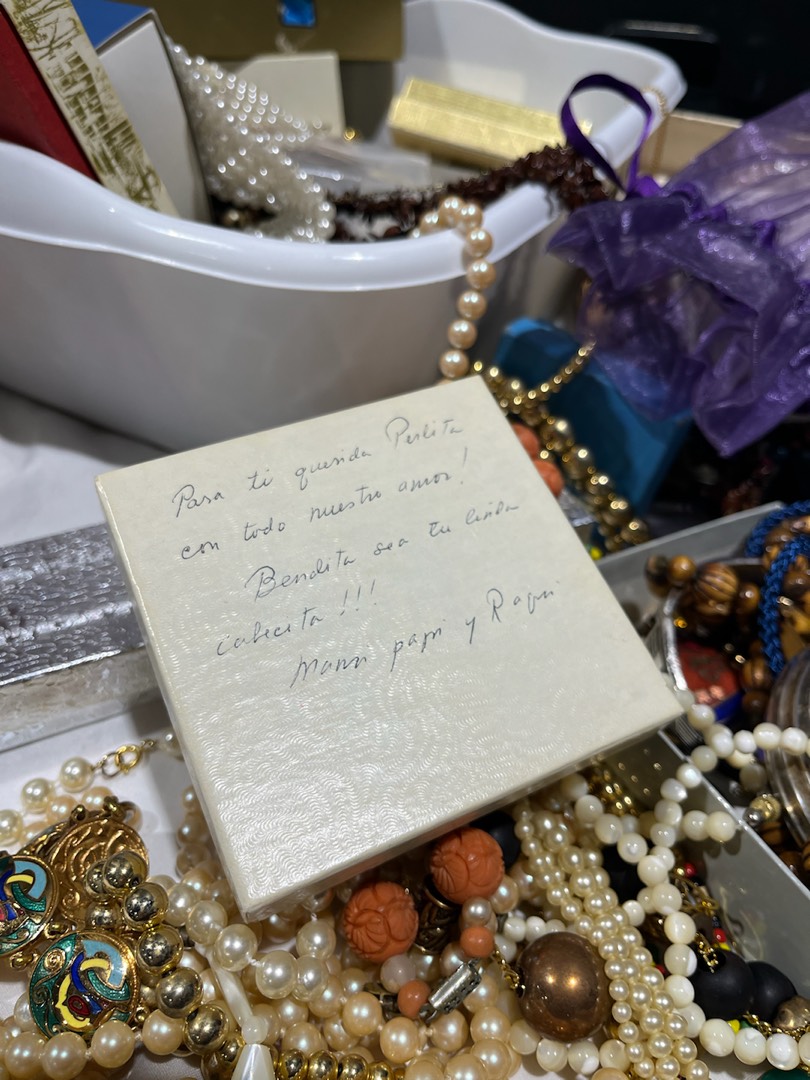 Para ti querida Perlita
con todo nuestro amor!
Bendita sea tu linda
cabecita !!!
Mami papi y Raqui